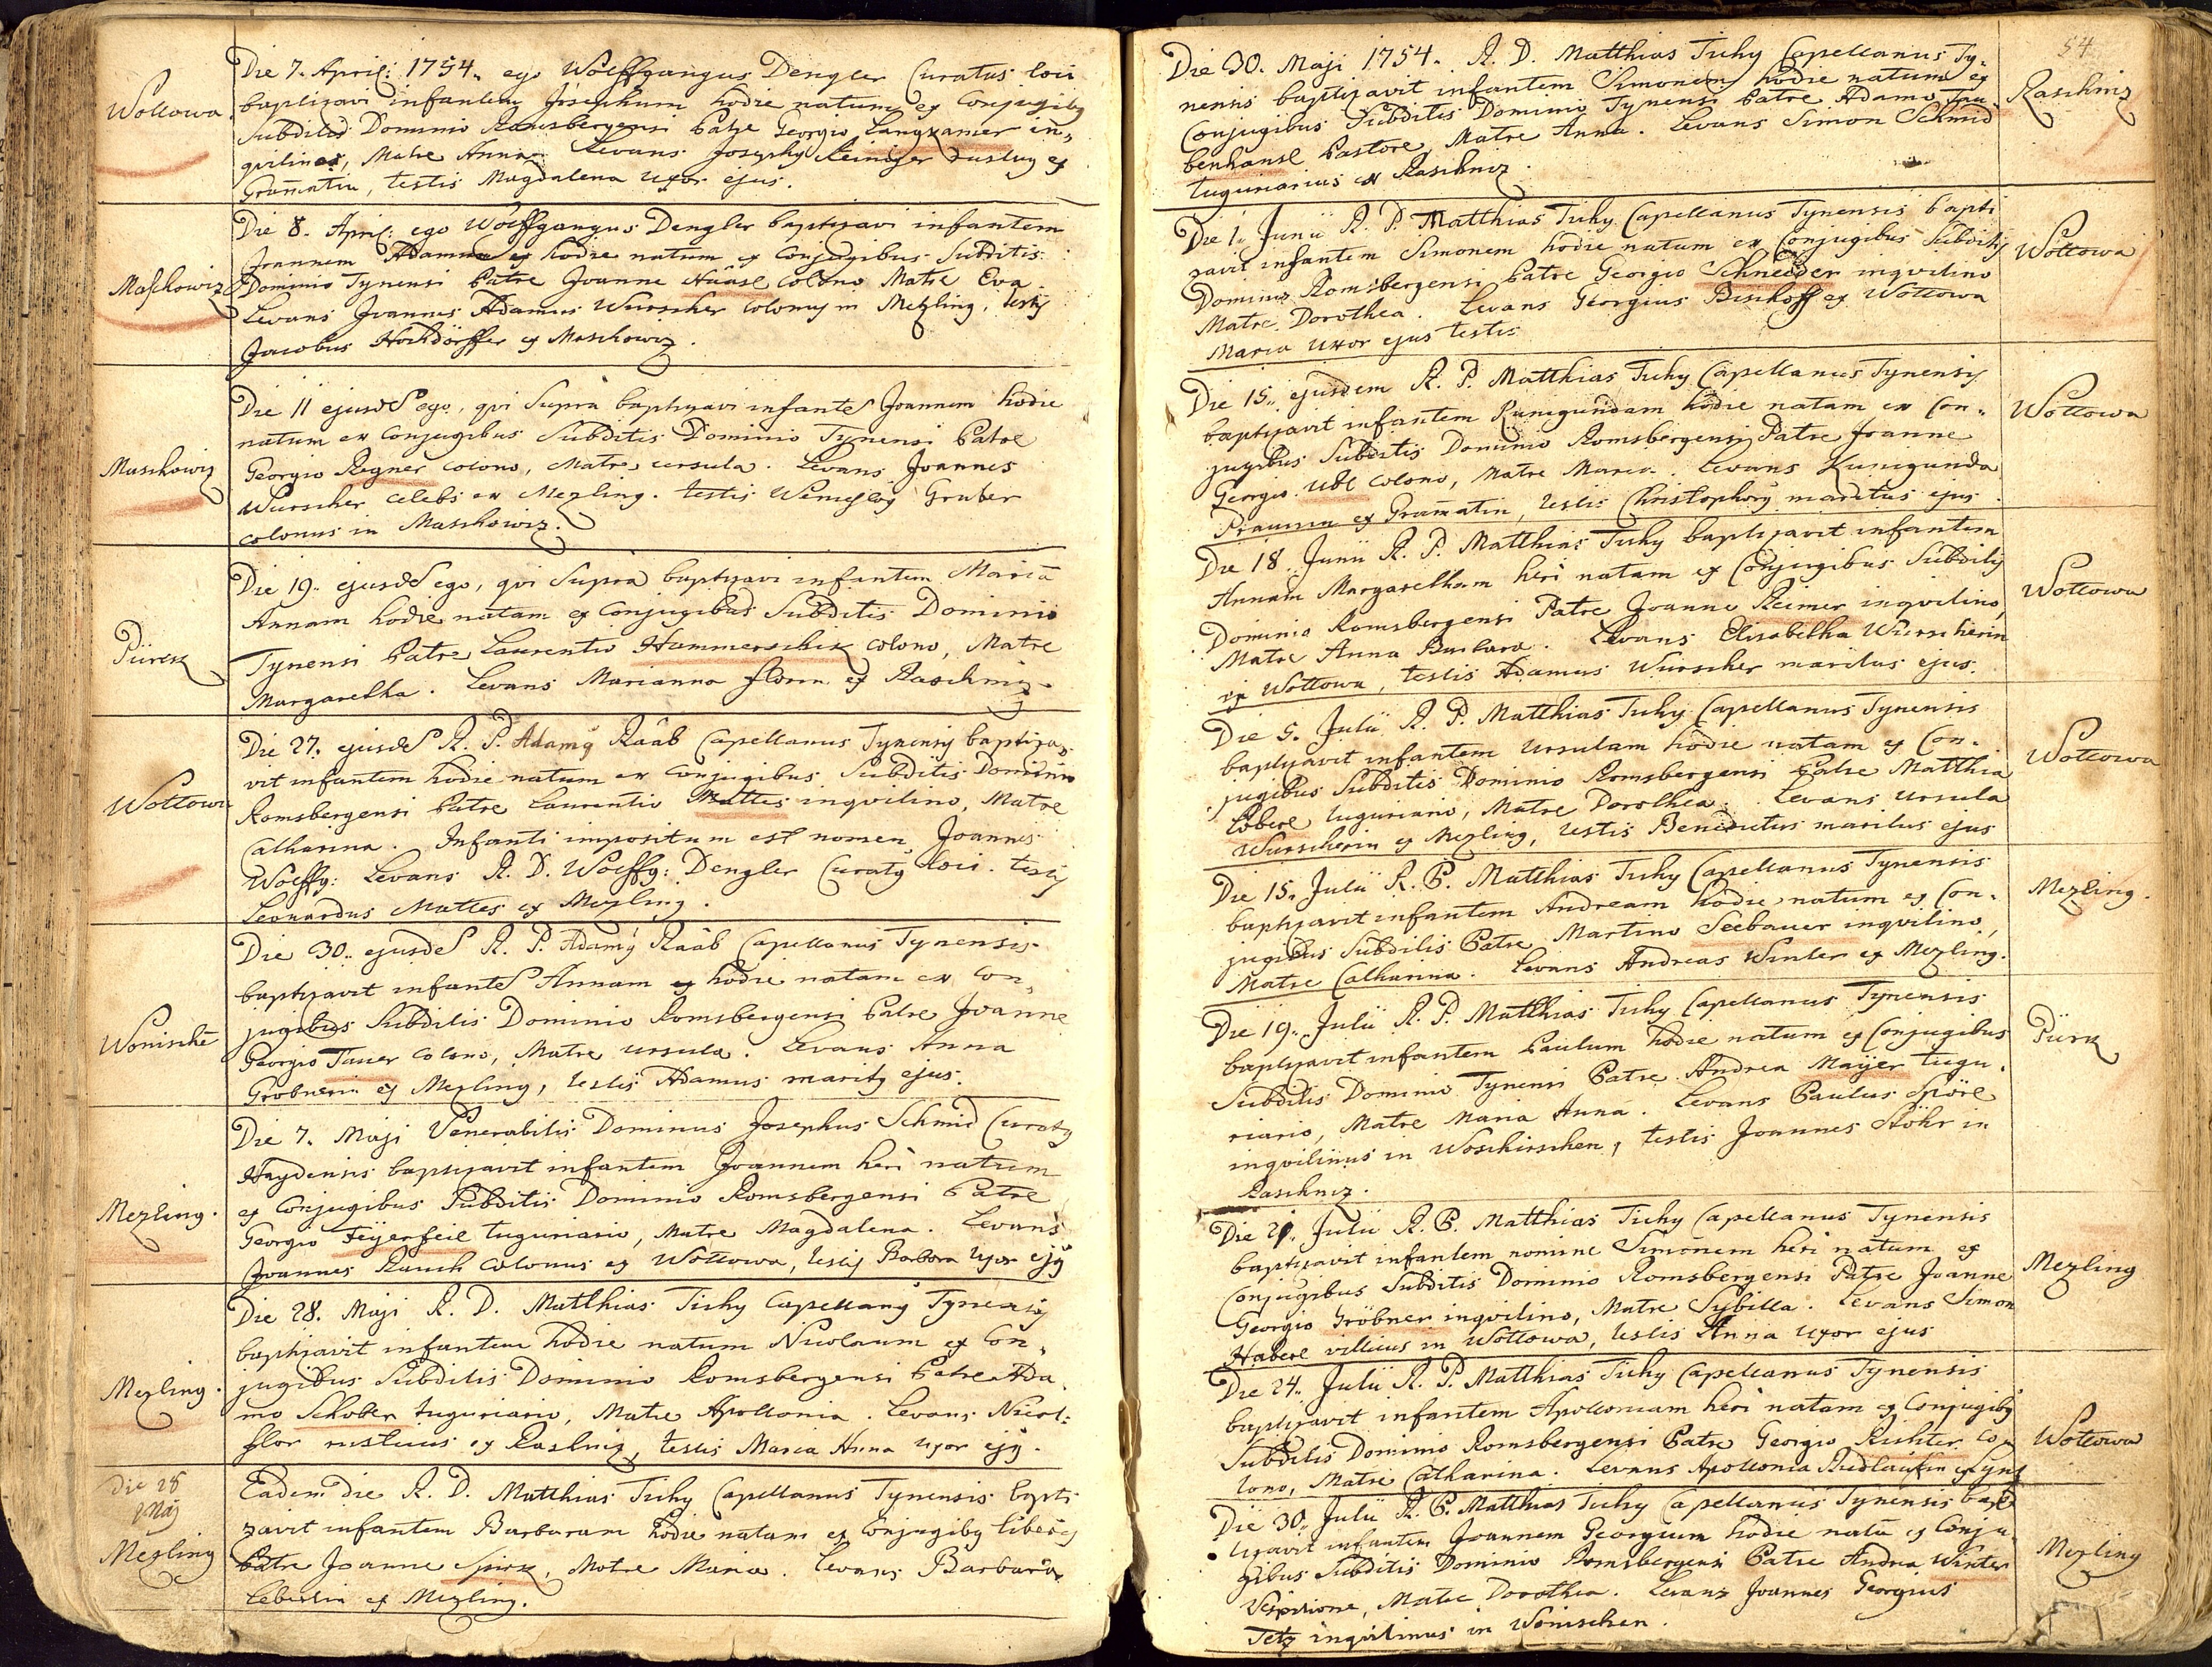 Wottowa
Die 7. April: 1754. ego Wolffgangus Dengler Curatus loci
baptizavi infantem Josephum hodie natum ex Conjugibg
Subditis Dominio Romsbergensi Patre Georgio Langxamer in„
qvilino, Matre Anna. Levans Josephg Reiniger rusticg ex
Gram̄atin, testis Magdalena uxor ejus.
Maschowiz
Die 8. April: ego Wolffgangus Dengler baptizavi infantem
Joannem Adamum ex hodie natum ex Conjugibus Subditis
Dominio Tynensi Patre Joanne Haasl colono Matre Eva.
Levans Joannes Adamus Wurscher colonus in Mezling, testis
Jacobus Hochdörffer ex Maschowiz.
Maschowiz
Die 11 ejusdē ego, qvi Supra baptizavi infantē Joannem hodie
natum ex Conjugibus Subditis Dominio Tynensi Patre
Georgio Regner colono, Matre Ursula. Levans Joannes
Wurscher celebs ex Mezling. testis Wenceslaus Gruber
colonus in Maschowiz.
Pürck
Die 19. ejusdē ego, qvi Supra baptizavi infantem Mariā
Annam hodie natam ex Conjugibus Subditis Dominio
Tynensi Patre Laurentio Hammerschick colono, Matre
Margaretha. Levans Marianna florin ex Raschniz.
Wottowa
Die 27. ejusdē R. P. Adamg Raab Capellanus Tynensis baptiza„
vit infantem hodie natum ex Conjugibus Subditis Dominio
Romsbergensi Patre Laurentio Mattes inqvilino, Matre
Catharina. Infanti impositum est nomen Joannes
Wolffg: Levans R. D. Wolffg: Dengler Curatg loci. testis
Leonardus Mattes ex Mezling.
Wonischē
Die 30. ejusdē R. P. Adamg Raab Capellanus Tynensis
baptizavit infantē Annam ex hodie natam ex Con„
jugibus Subditis Dominio Romsbergensi Patre Joanne
Georgio Tauer colono, Matre Ursula. Levans Anna
Gröbnerin ex Mezling, testis Adamus maritg ejus.
Mezling.
Die 7. Maji Venerabilis Dominus Josephus Schmid Curatg
Haydensis baptizavit infantem Joannem heri natum
ex Conjugibus Subditis Dominio Romsbergensi Patre
Georgio Feÿerfeil tuguriario, Matre Magdalena. Levans
Joannes Rauch colonus ex Wottowa, testis Barbara uxor ejg
Mezling.
Die 28. Maji R. D. Matthias Tichy Capellang Tynensis
baptizavit infantem hodie natum Nicolaum ex Con„
jugibus Subditis Dominio Romsbergensi Patre Ada
mo Schober tuguriario, Matre Apollonia. Levans Nicol:
flor rusticus ex Raschniz, testis Maria Anna uxor ejg.
Die 28
Maj
Mezling
Eadem die R. D. Matthias Tichy Capellanus Tynensis bapti
zavit infantem Barbaram hodie natam ex Conjugibg liberis
Patre Joanne Spirk, Matre Maria. Levans Barbara
Leberlin ex Mezling.
54
Raschniz
Die 30. Maji 1754. R. D. Matthias Tichy Capellanus Ty„
nensis baptizavit infantem Simonem hodie natum ex
Conjugibus Subditis Dominio Tynensi Patre Adamo Trau
benhansl Pastore, Matre Anna. Levans Simon Schmid
tuguriarius ex Raschniz.
Wottowa
Die 1. Junii R. P. Matthias Tichy Capellanus Tynensis bapti
zavit infantem Simonem hodie natum ex Conjugibus Subditis
Dominio Romsbergensi Patre Georgio Schneider inqvilino
Matre Dorothea. Levans Georgius Bischoff ex Wottowa
Maria uxor ejus testis
Wottowa
Die 15. ejusdem R. P. Matthias Tichy Capellanus Tynensis
baptizavit infantem Kunigundam hodie natam ex Con„
jugibus Subditis Dominio Romsbergensi Patre Joanne
Georgio Ubl colono, Matre Maria. Levans Kunigunda
Praunin ex Gram̄atin, testis Christophorg maritus ejus.
Wottowa
Die 18. Junii R. P. Matthias Tichy baptizavit infantem
Annam Margaretham heri natam ex Conjugibus Subditis
Dominio Romsbergensi Patre Joanne Reimer inqvilino,
Matre Anna Barbara. Levans Elisabetha Wurscherin
ex Wottowa, testis Adamus Wurscher maritus ejus.
Wottowa
Die 5. Julii R. P. Matthias Tichy Capellanus Tynensis
baptizavit infantem Ursulam hodie natam ex Con„
jugibus Subditis Dominio Romsbergensi Patre Matthia
Eberl tuguriario, Matre Dorothea. Levans Ursula
Wurscherin ex Mezling, testis Benedictus maritus ejus
Mezling.
Die 15. Julii R. P. Matthias Tichy Capellanus Tynensis
baptizavit infantem Andream hodie natum ex Con„
jugibus Subditis Patre Martino Seebauer inqvilino,
Matre Catharina. Levans Andreas Winter ex Mezling.
Pürk
Die 19. Julii R. P. Matthias Tichy Capellanus Tynensis
baptizavit infantem Paulum hodie natum ex Conjugibus
Subditis Dominio Tynensi Patre Andrea Maÿer tugu„
riario, Matre Maria Anna. Levans Paulus Spörl
inqvilinus in Woschirschen, testis Joannes Stöhr in
Raschniz.
Mezling
Die 21. Julii R. P. Matthias Tichy Capellanus Tynensis
baptizavit infantem nomine Simonem heri natum ex
Conjugibus Subditis Dominio Romsbergensi Patre Joanne
Georgio Gröbner inqvilino, Matre Sybilla. Levans Simon
Haberl villicus in Wottowa, testis Anna uxor ejus
Wottowa
Die 24. Julii R. P. Matthias Tichy Capellanus Tynensis
baptizavit infantem Apolloniam heri natam ex Conjugibg
Subditis Dominio Romsbergensi Patre Georgio Richter co„
lono, Matre Catharina. Levans Apollonia
Mezling
Die 30. Julii R. P. Matthias Tichy Capellanus Tynensis bap
tizavit infantem Joannem Georgium hodie natū ex Conju„
gibus Subditis Dominio Romsbergensi Patre Andrea Winter
Vespilione, Matre Dorothea. Levans Joannes Georgius
Tetz inqvilinus in Wonischen.